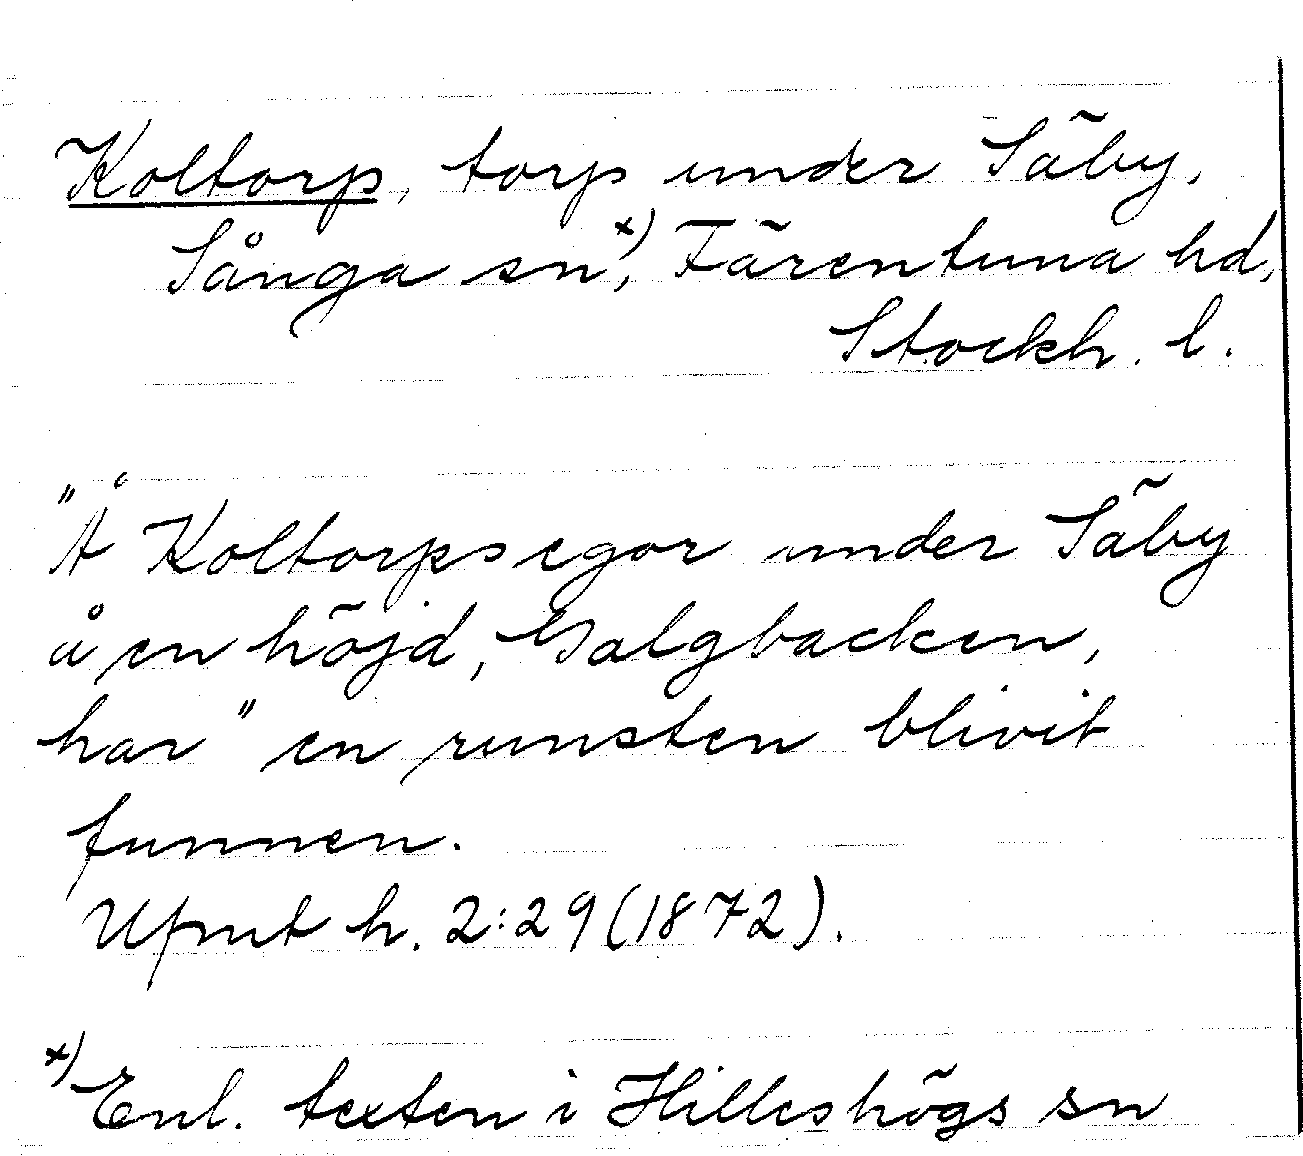 Koltorp, torp under Säby,
Sånga sn,x) Färentuna hd,
Stockh. l.
"Å Koltorpsegor under Säby
å en höjd, Galgbacken,
har" en runsten blivit
funnen.
Ufmt h. 2:29 (1872).
x) Enl. texten i Hilleshögs sn